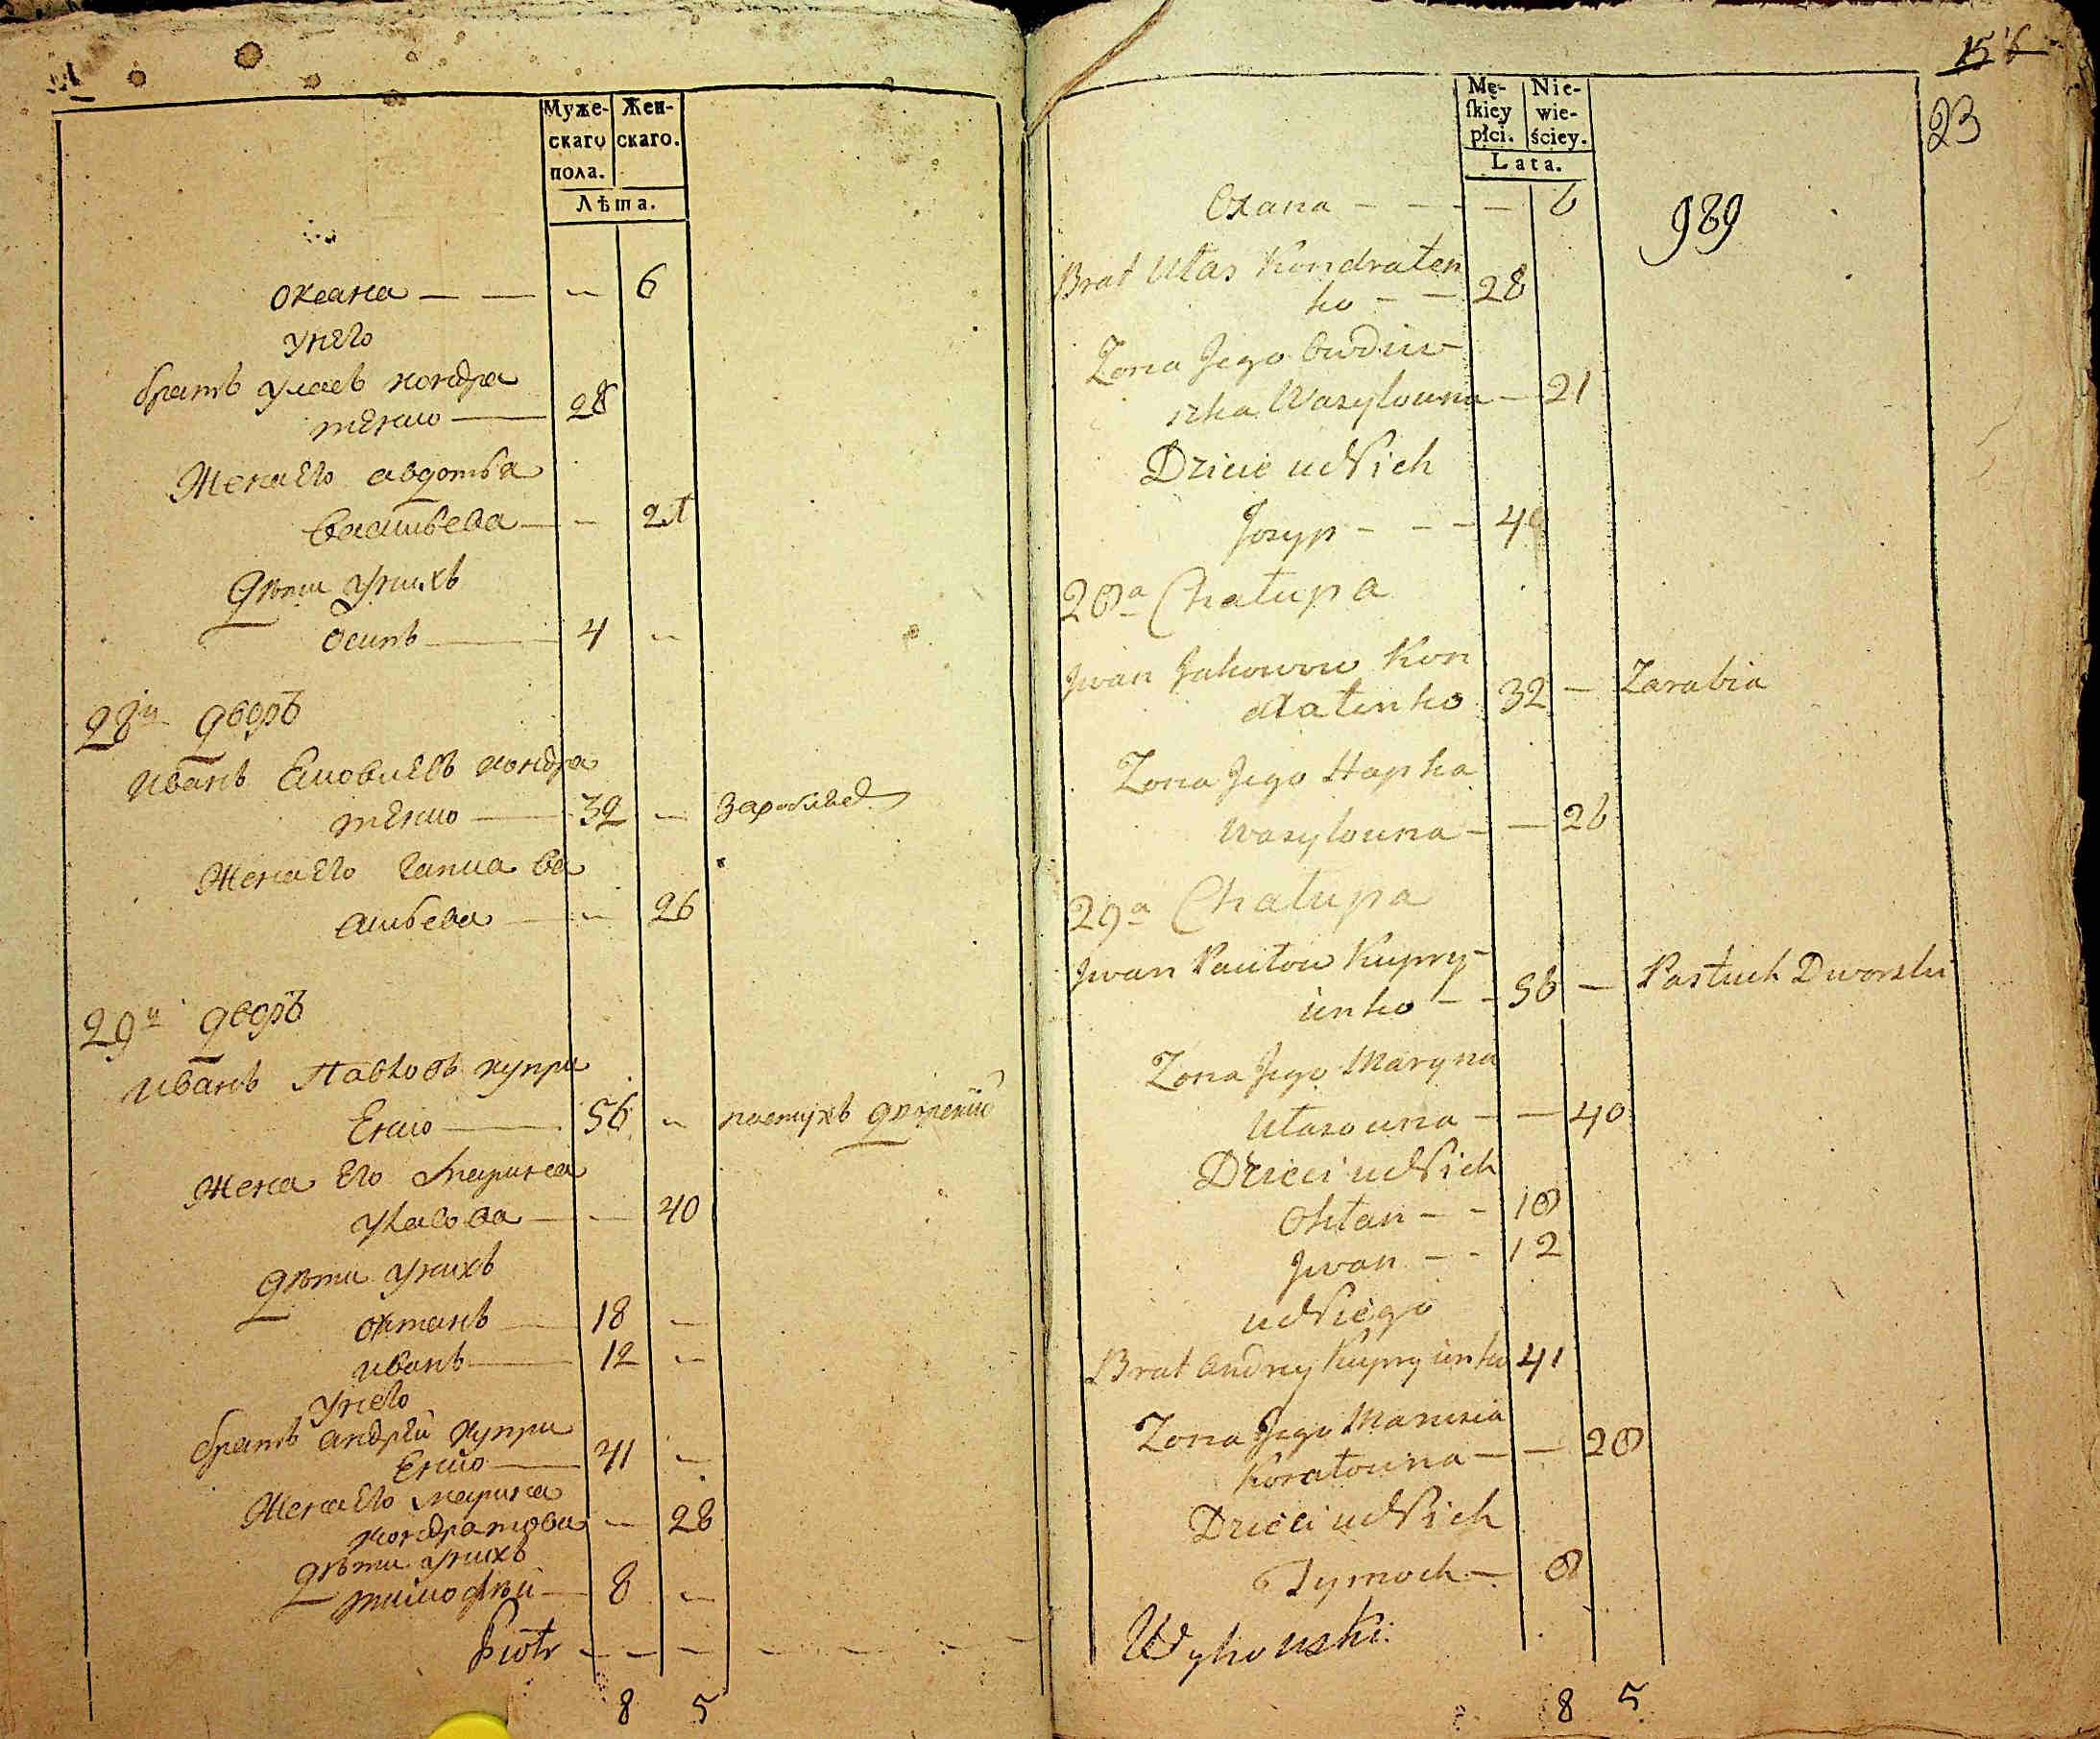 Муже-
скаго
пола.
Жен-
скаго.
Лѣта.
Оксана — — — 6
у него
братъ Уласъ Кондра
тенко — 28
Жена его Авдотья
Васильева — — 21
Дѣти у нихъ
Осипъ — 4 —
28й дворъ
Иванъ Яковлевъ Кондра
тенко — 32 —
Жена его Гапка Ва
сильева — — 26
29й дворъ
Иванъ Павловъ Купри
Енко — 56 — пастухъ дворскій
Жена Его Марина
Уласова — — 40
Дѣти у нихъ
Октанъ — 18 —
Иванъ — 12 —
У него
братъ Андрей Купри
Енко — 41 —
Жена Его Марина
Кондратова — 28
дѣти у нихъ
Тимофѣй — 8 —
Piotr — — — — — —
8 5
156
23
Mę-
ſkiey
płci.
Nie-
wie-
ściey.
Lata.
989
Oxana — — — 6
Brat Ułas Kondraten
ko — — 28
Zona Jego Owdiu-
szka Wasylowna — 21
Dzicie u Nich
Josyp — — — 4
28a Chałupa
Jwan Jakowow Kon
dratenko 32 — Zarabia
Zona Jego Hapka
Wasylowna — — 26
29a Chałupa
Jwan Pawłow Kupry-
ienko — — 56 — Pastuch Dworski
Zona Jego Maryna
Ułasowna — — 40
Dzieci u Nich
Oktan — — 18
Jwan — — 12
u Niego
Brat Andrey Kupryienko 41
Zona Jego
— — 28
Dzieci u Nich
Tymoch — 8
Wyhowski.
8 5